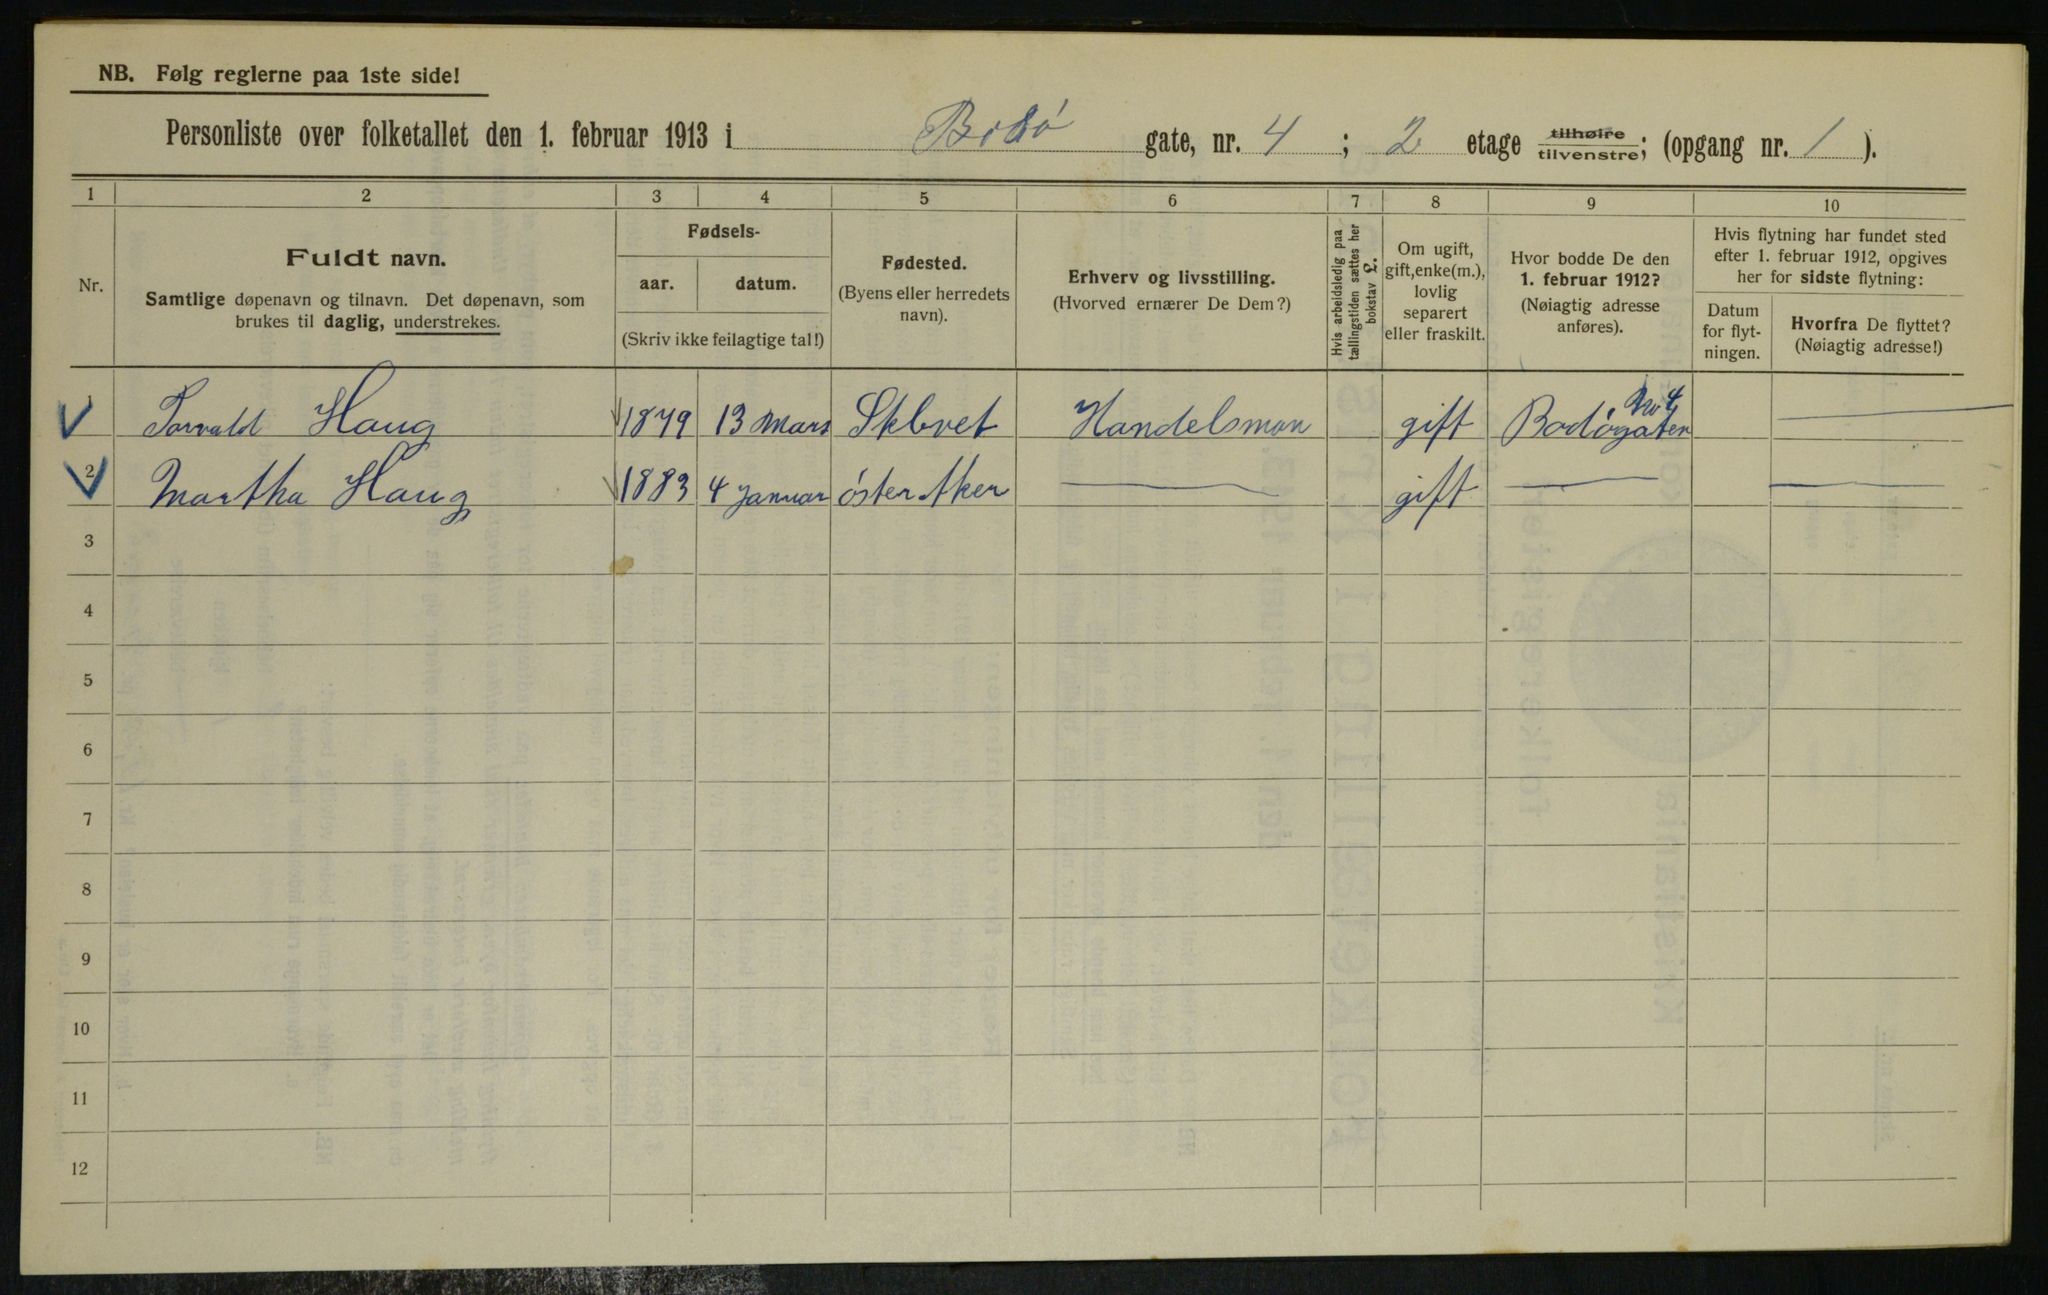 NB. Følg reglerne paa 1ste side!
Personliste over folketallet den 1. februar 1913 i Bodø gate, nr. 4 ; 2 etage tilhøire tilvenstre; (opgang nr. 1 ).
1 2 3 4 5 6 7 8 9 10
Nr.
Fuldt navn.
Samtlige døpenavn og tilnavn. Det døpenavn, som
brukes til daglig, understrekes.
Fødsels-
aar. datum.
(Skriv ikke feilagtige tal!)
Fødested.
(Byens eller herredets
navn).
Erhverv og livsstilling.
(Hvorved ernærer De Dem?)
Hvis arbeidsledig paa
tællingstiden sættes her
bokstav L.
Om ugift,
gift, enke(m.),
lovlig
separert
eller fraskilt.
Hvor bodde De den
1. februar 1912?
(Nøiagtig adresse
anføres).
Hvis flytning har fundet sted
efter 1. februar 1912, opgives
her for sidste flytning:
Datum
for flyt-
ningen.
Hvorfra De flyttet?
(Nøiagtig adresse!)
1 Torvald Haug 1879 13 Mars Handelsman gift Bodøgaten No 4
2 Martha Haug 1883 4 Januar øster Aker gift
3
4
5
6
7
8
9
10
11
12